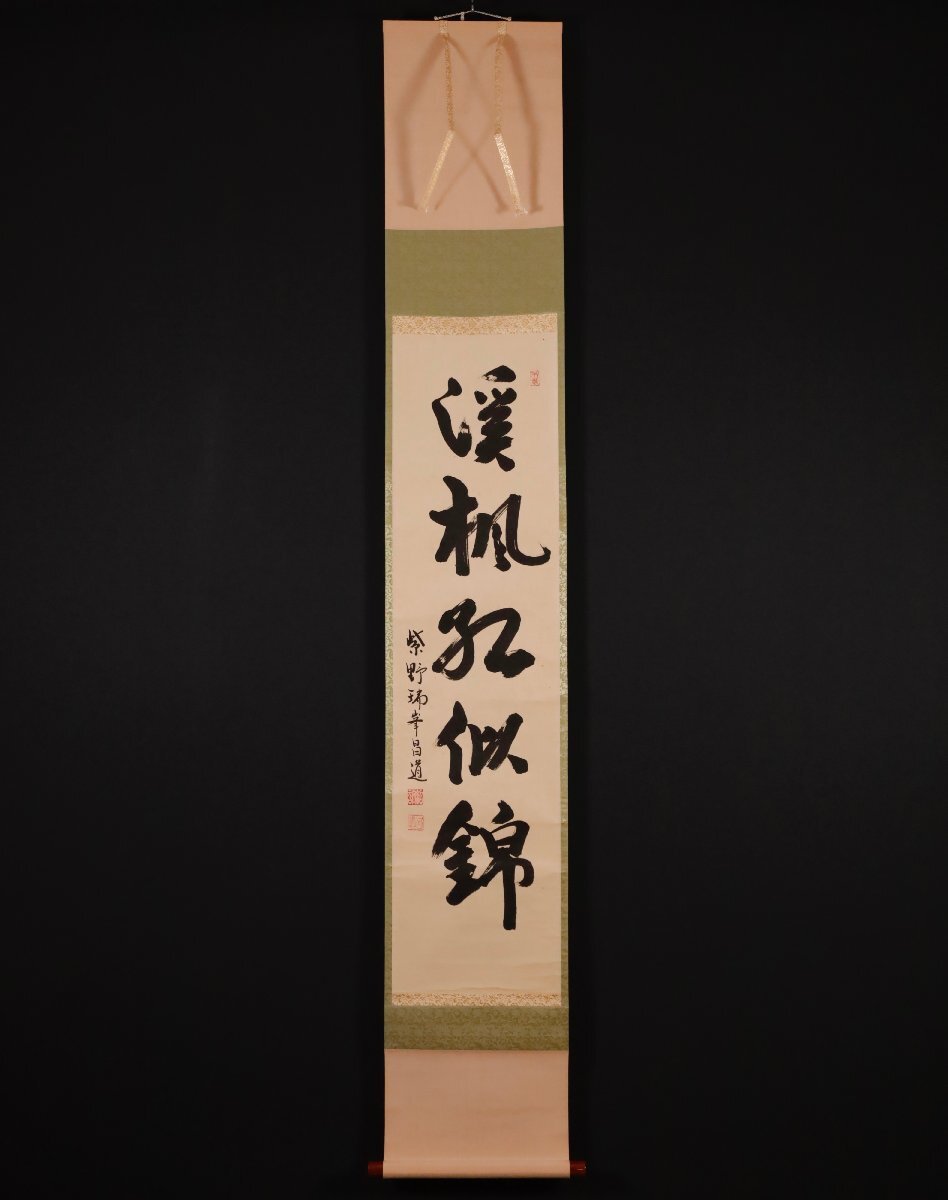 溪楓紅似錦
紫野瑞峯昌道